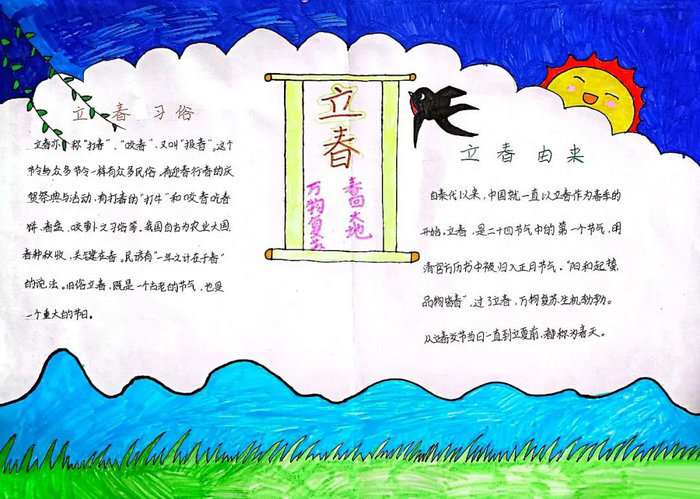 立春习俗
立春亦称"打春"、"咬春",又叫"报春"。这个
节令与众多节令一样有众多民俗,有迎春行春的庆
贺祭典与活动,有打春的"打牛"和咬春吃春
饼、春盘、咬萝卜之习俗等。我国自古为农业大国
春种秋收,关键在春。民谚有"一年之计在于春"
的说法。旧俗立春,既是一个古老的节气,也是
一个重大的节日。
立春
春回大地
万物复苏
立春由来
自秦代以来,中国就一直以立春作为春季的
开始。立春,是二十四节气中的第一个节气,明
清官方历书中被归入正月节气。"阳和起蛰,
品物皆春",过了立春,万物复苏生机勃勃。
从立春交节当日一直到立夏前,都称为春天。